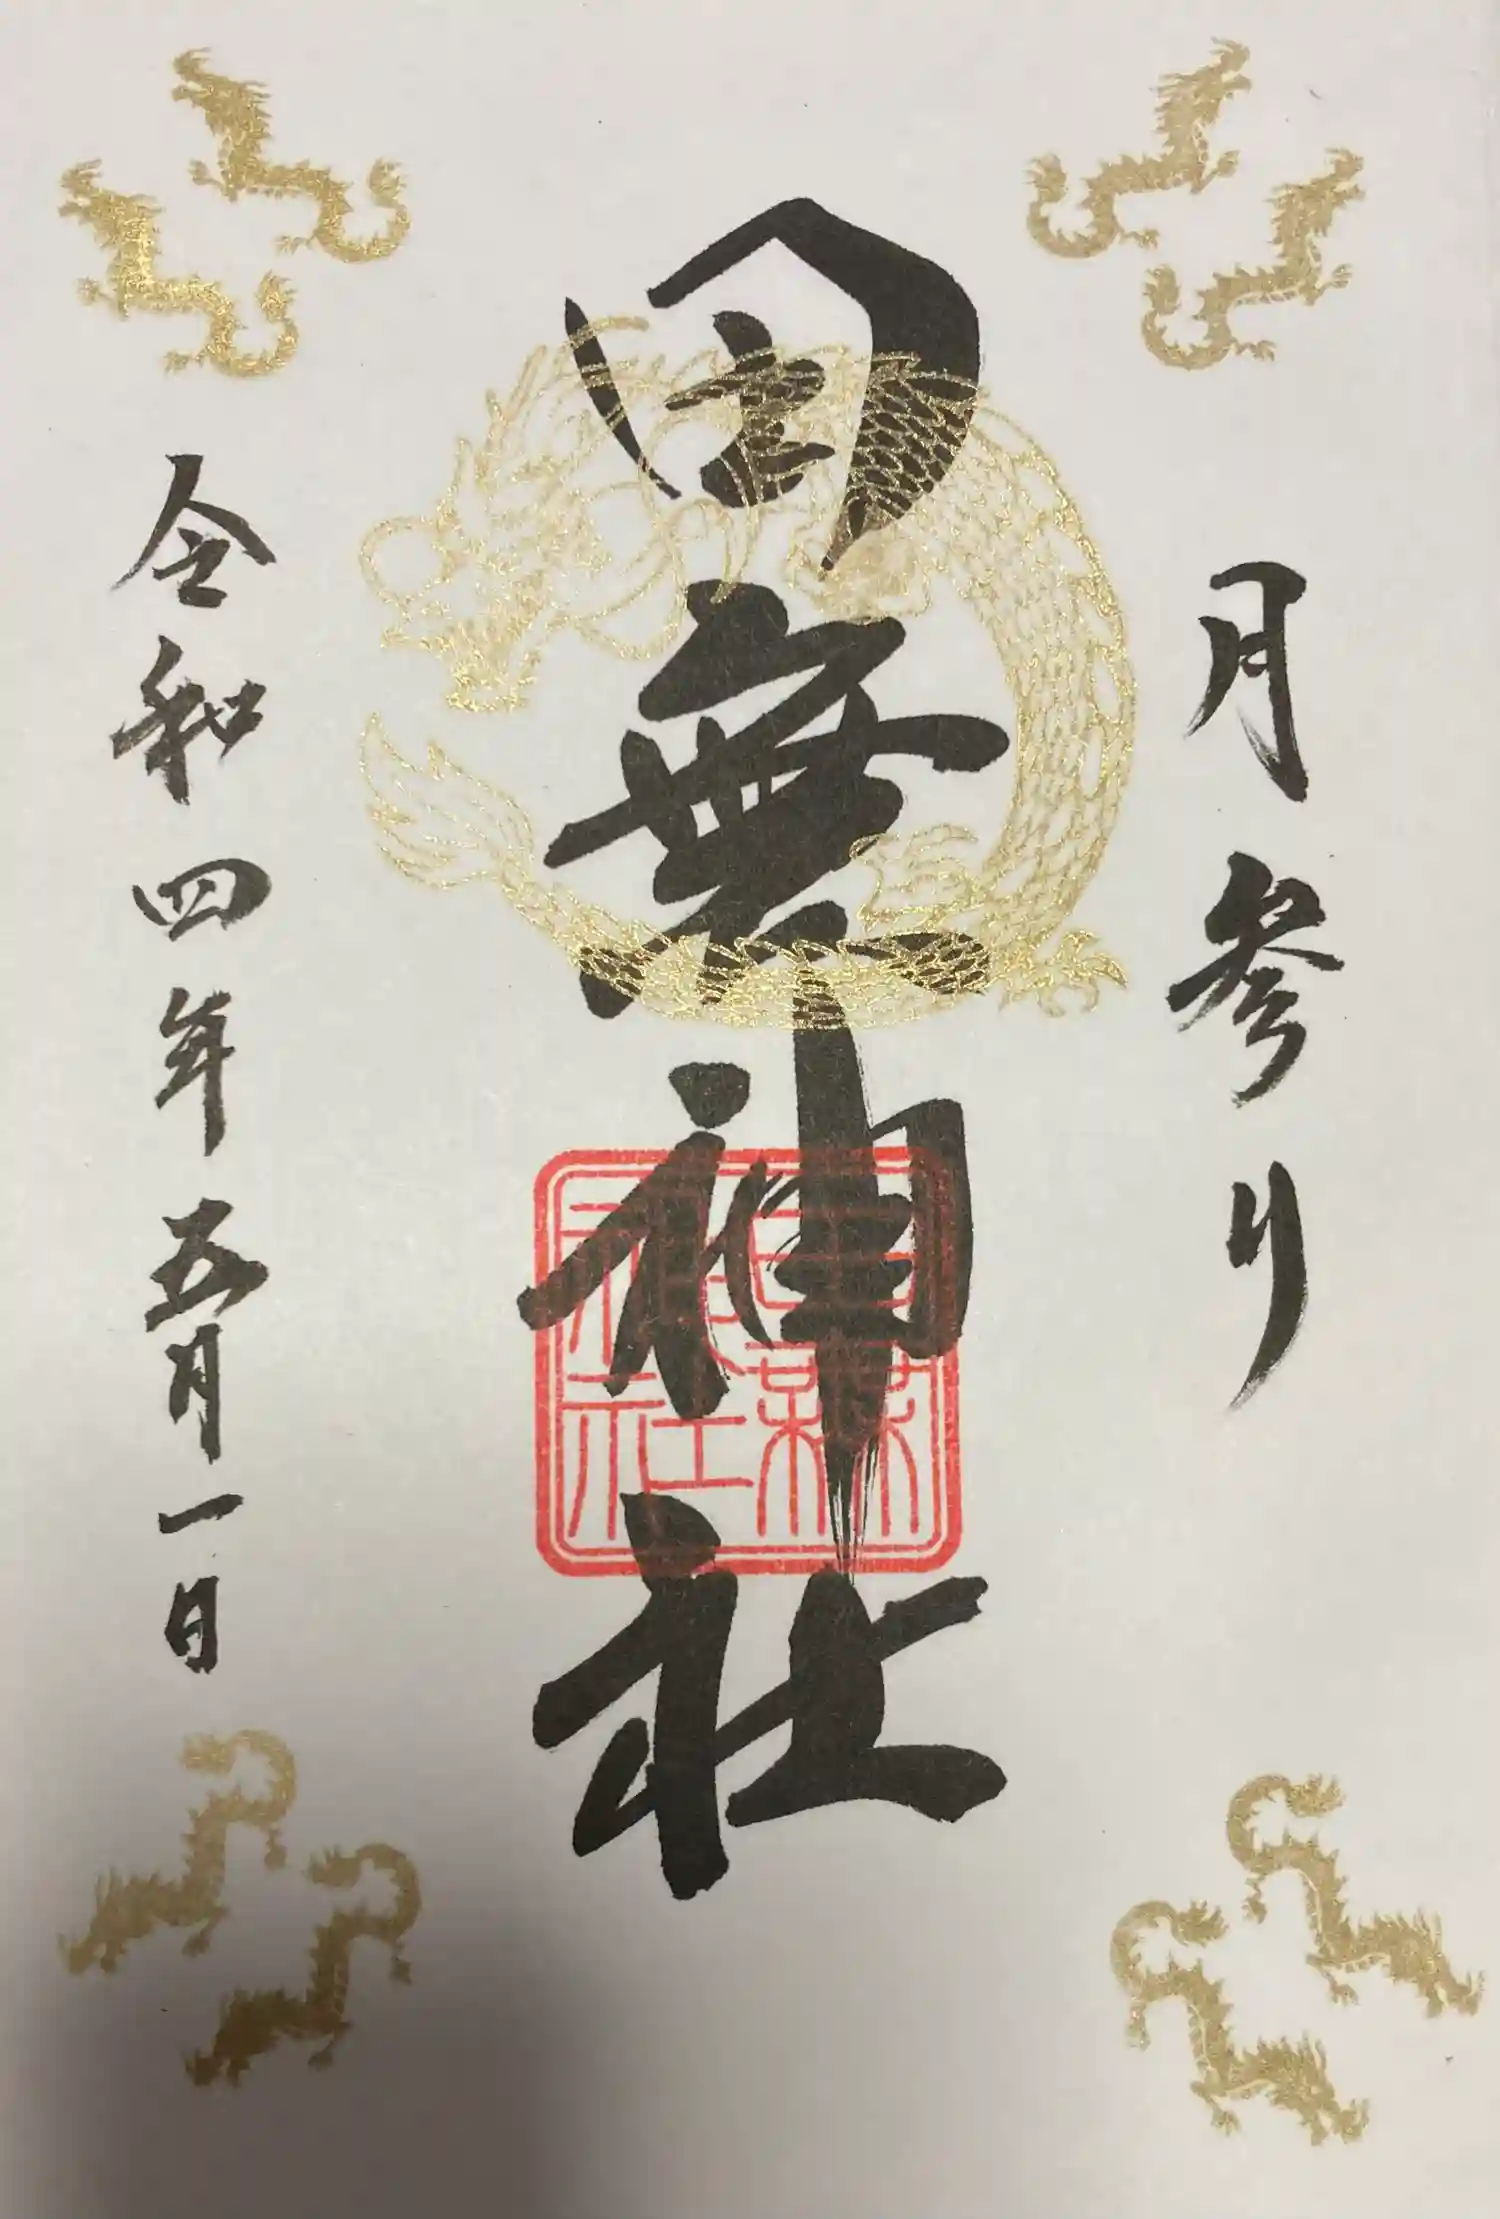 月参り
田無神社
令和四年五月一日
田無神社